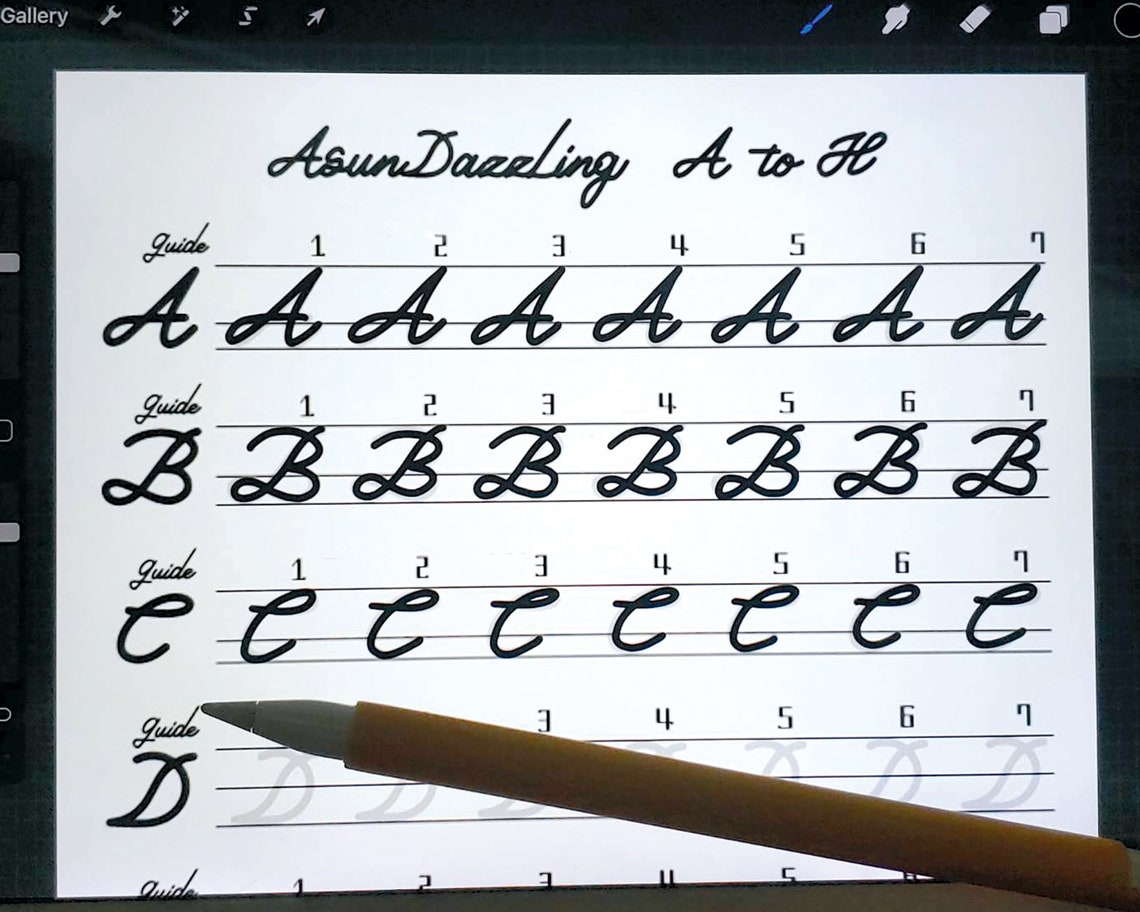 Gallery
AsunDazzLing A to H
guide 1 2 3 4 5 6 7
A A A A A A A A
guide 1 2 3 4 5 6 7
B B B B B B B B
guide 1 2 3 4 5 6 7
C C C C C C C C
guide 3 4 5 6 7
D D D D D D D D
guide 1 2 3 4 5